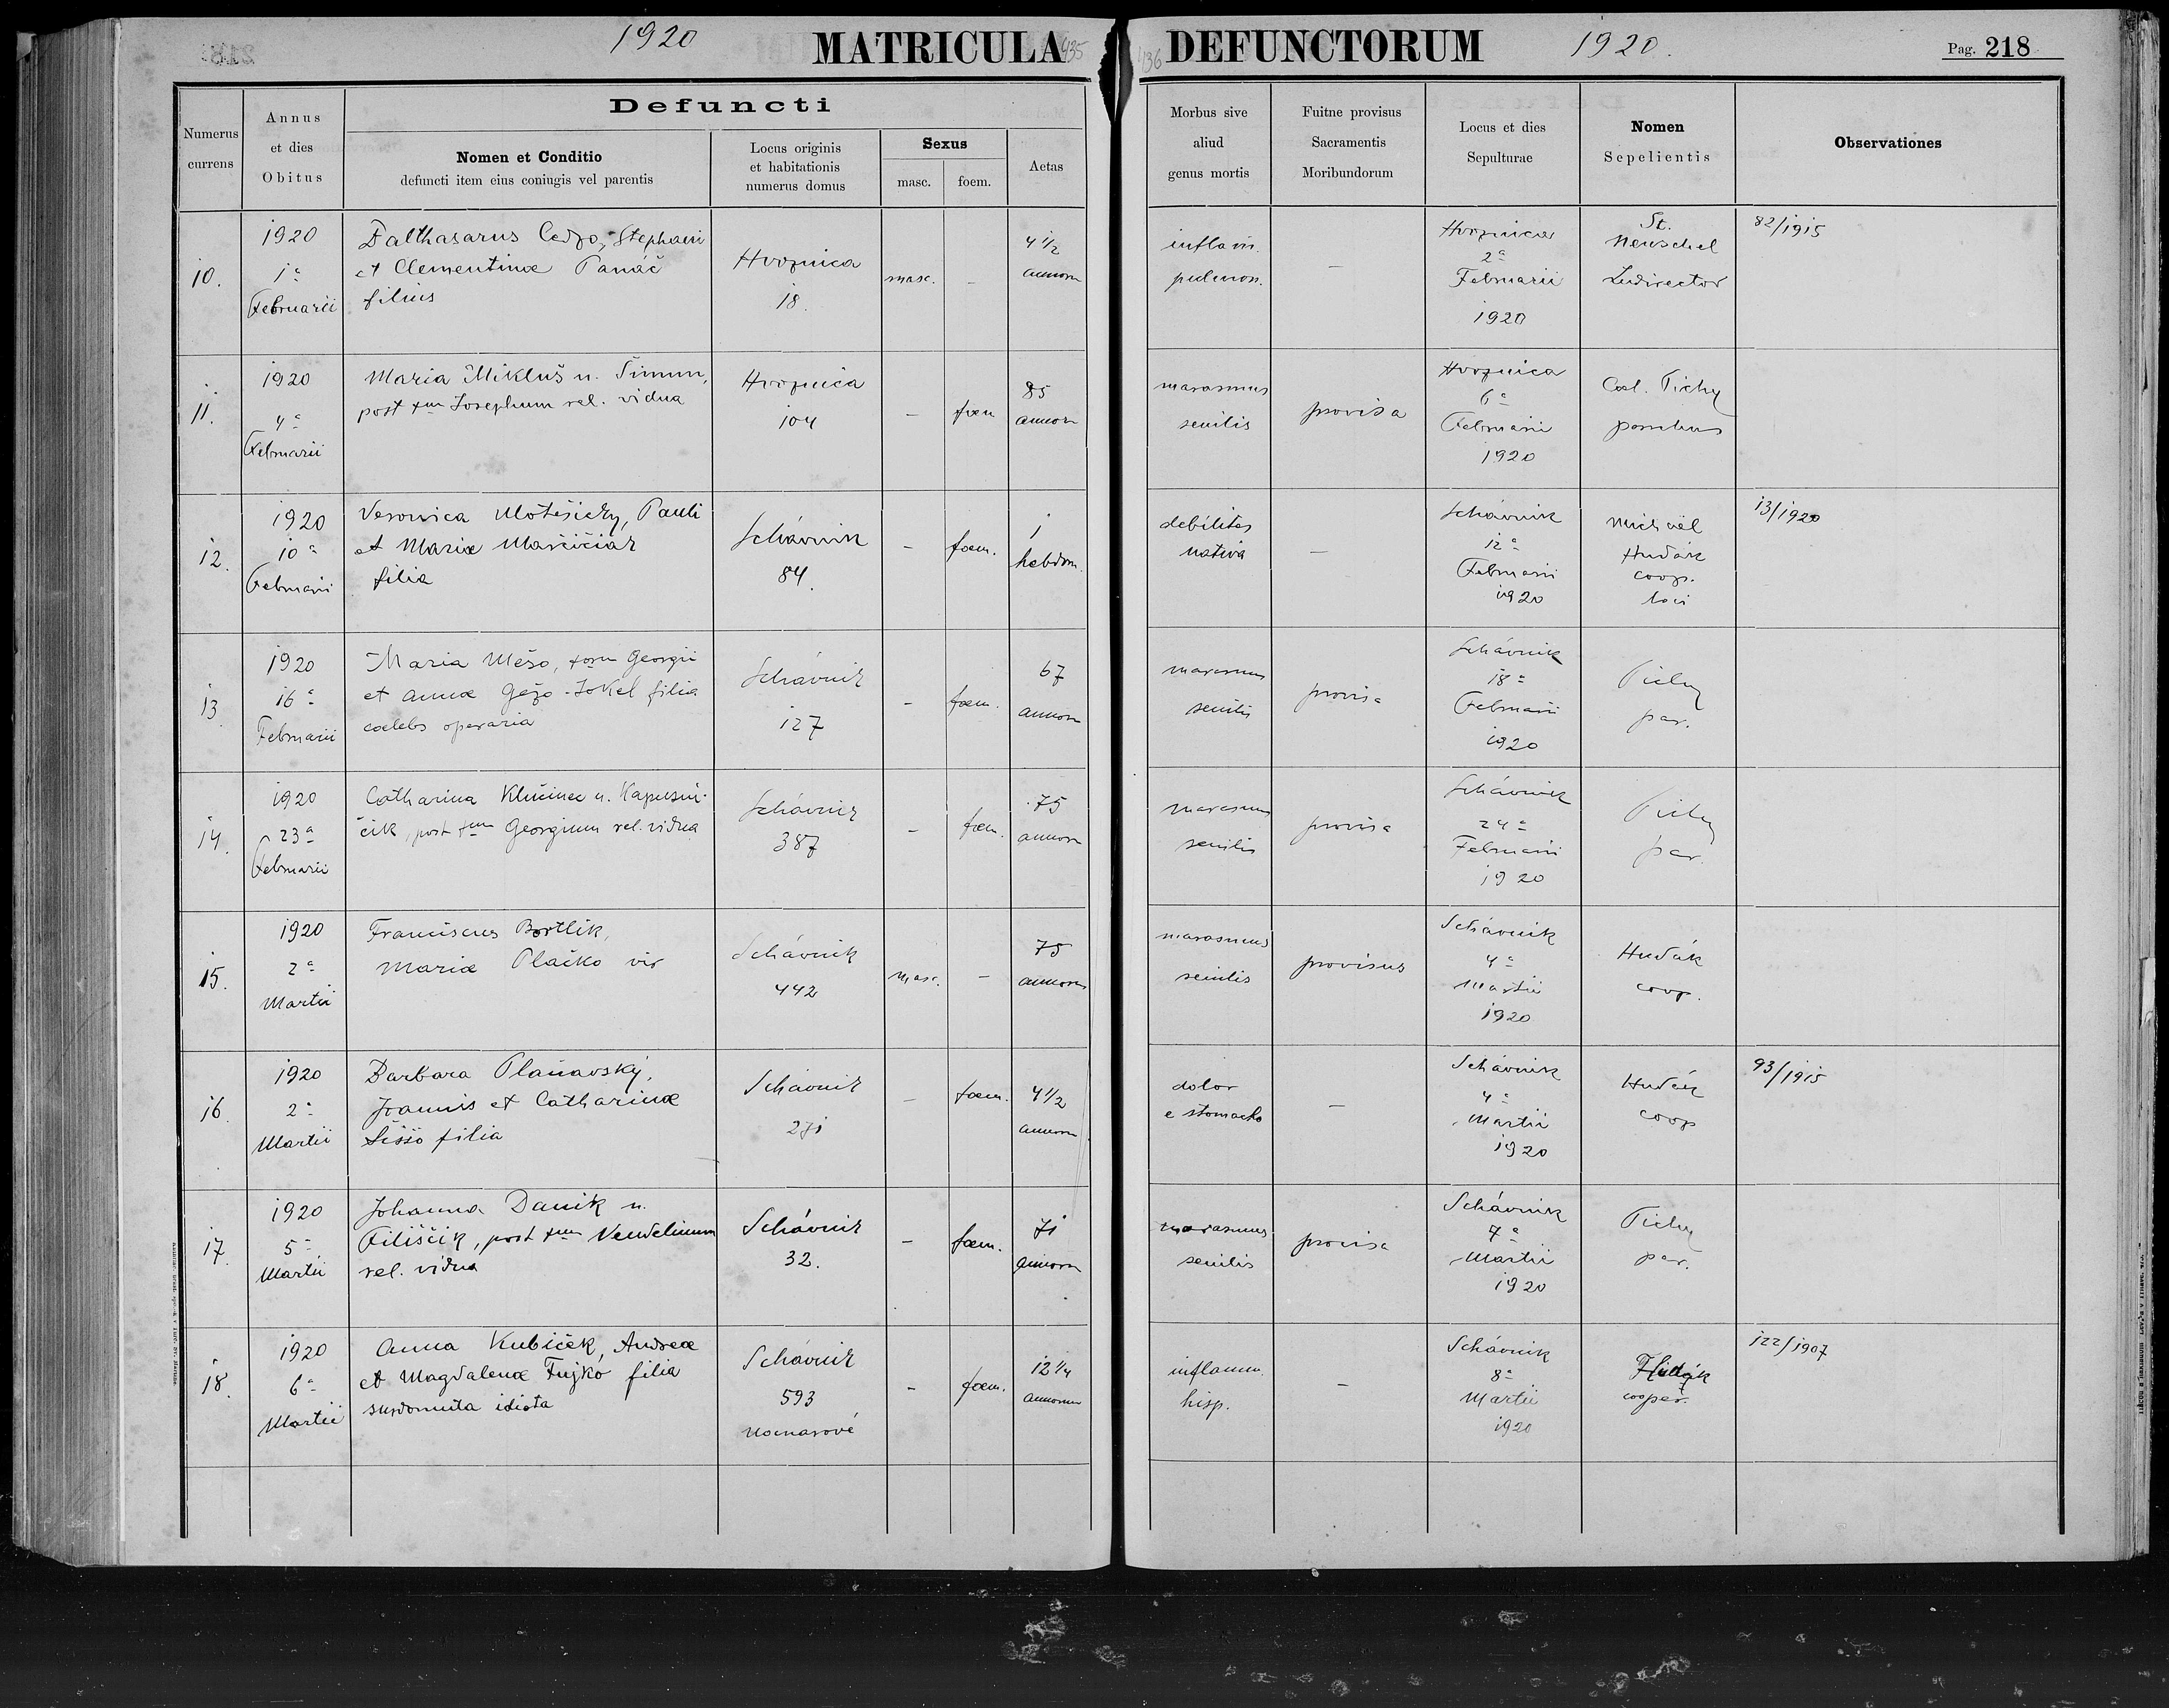 1920 MATRICULA 435
436 DEFUNCTORUM 1920. Pag. 218
Numerus currens
Annus et dies Obitus
Defuncti
Nomen et Conditio
defuncti item eius coniugis vel parentis
Locus originis et habitationis numerus domus
Sexus
masc. foem.
Aetas
Morbus sive aliud genus mortis
Fuitne provisus Sacramentis Moribundorum
Locus et dies Sepulturae
Nomen Sepelientis
Observationes
10.
1920
1a
Februarii
Balthasarus Cedzo, Stephani
et Clementinæ Panáč
filius
Hvoznica
18.
masc. -
4 1/2
annorum
inflam.
pulmon.
-
Hvoznica
2a
Februarii
1920
St.
Neuschel
Ludirector
82/1915
11.
1920
4a
Februarii
Maria Mikluš n. Šimun,
post +um Josephum rel. vidua
Hvoznica
104
- foem
85
annorum
marasmus
senilis
provisa
Hvoznica
6a
Februarii
1920
Col. Tichy
parochus
12.
1920
10a
Februarii
Veronica Motešický, Pauli
et Mariæ Marčičiar
filia
Schávnik
84.
- foem.
1
hebdom.
debilitas
nativa
-
Schávnik
12a
Februarii
1920
Michael
Hudák
coop.
loci
13/1920
13
1920
16a
Februarii
Maria Mešo, +orum Georgii
et Annæ Gézo-Jokel filia
cœlebs operaria
Schávnik
127
- foem.
67
annorum
marasmus
senilis
provisa
Schávnik
18a
Februarii
1920
Tichy
par.
14.
1920
23a
Februarii
Catharina Klučinec n. Kapusni-
čik, post +um Georgium rel. vidua
Schávnik
387
- foem.
75
annorum
marasmus
senilis
provisa
Schávnik
24a
Februarii
1920
Tichy
par.
15.
1920
2a
Martii
Franciscus Bortlik,
Mariæ Plačko vir
Schávnik
442
masc. -
75
annorum
marasmus
senilis
provisus
Schávnik
4a
Martii
1920
Hudák
coop.
16.
1920
2a
Martii
Barbara Planavský,
Joannis et Catharinæ
Šiššo filia
Schávnik
271
- foem.
4 1/2
annorum
dolor
e stomacho
-
Schávnik
4a
Martii
1920
Hudák
coop
93/1915
17.
1920
5a
Martii
Johanna Danik n.
Filiščik, post +um Vendelinum
rel. vidua
Schávnik
32.
- foem.
71
annorum
marasmus
senilis
provisa
Schávnik
7a
Martii
1920
Tichy
par.
18.
1920
6a
Martii
Anna Kubiček, Andreæ
et Magdalenæ Fujko filia
surdomuta idiota
Schávnik
593
- foem.
12 1/4
annorum
inflamm.
hisp.
-
Schávnik
8a
Martii
1920
Hudák
cooper.
122/1907